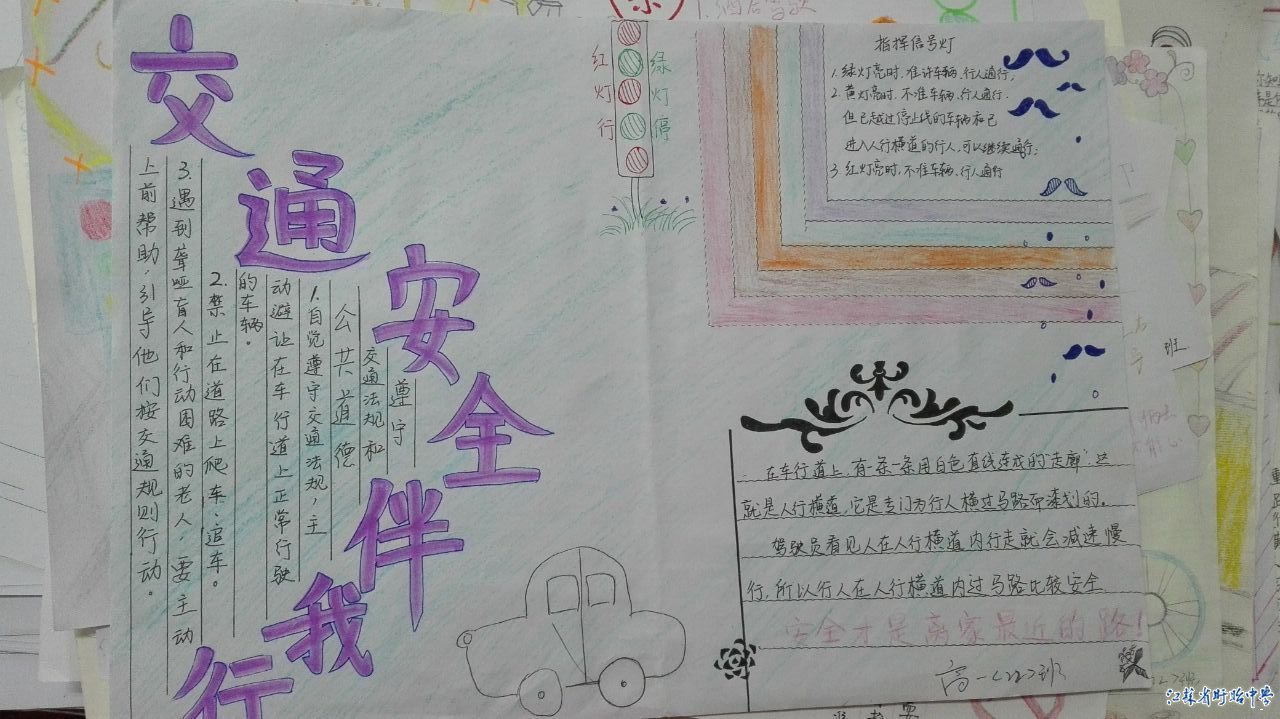 交通安全伴我行
遵守
交通法规和
公共道德
1.自觉遵守交通法规,主
动避让在车行道上正常行驶
的车辆。
2.禁止在道路上爬车、追车。
3.遇到聋哑盲人和行动困难的老人,要主动
上前帮助,引导他们按交通规则行动。
红灯行
绿灯停
指挥信号灯
1.绿灯亮时,准许车辆、行人通行;
2.黄灯亮时,不准车辆、行人通行,
但已越过停止线的车辆和已
进入人行横道的行人,可以继续通行;
3.红灯亮时,不准车辆、行人通行
在车行道上,有一条一条用白色直线连成的“走廊”,这
就是人行横道,它是专门为行人横过马路而漆划的。
驾驶员看见人在人行横道内行走就会减速慢
行,所以行人在人行横道内过马路比较安全
安全才是离家最近的路!
高一<22>班
班
江苏省盱眙中学